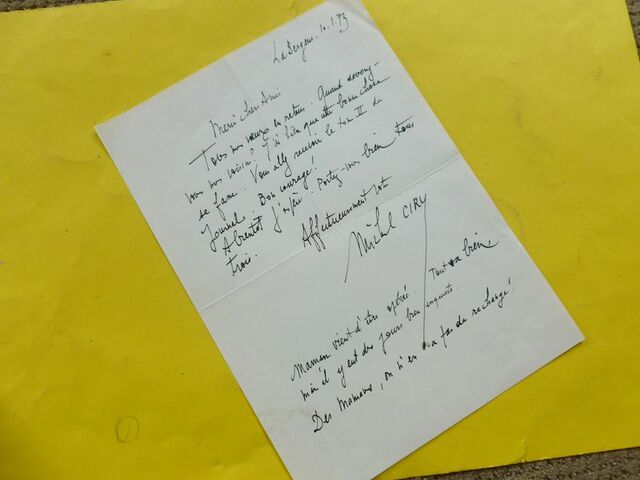 La Bergerie. 10.1.73
Merci chers Amis
Tous nos vœux en retour. Quand devenez-
vous nos voisins? J'ai hâte que cette bonne chose
se fasse. Vous allez recevoir le tome II du
Journal. Bon courage!
A bientôt j'espère. Portez-vous bien tous
trois.
Affectueusement votre
Michel CIRY
Maman vient d'être opérée. Tout va bien
mais il y eut des jours bien inquiets.
Des Mamans, on n'en a pas de rechange!